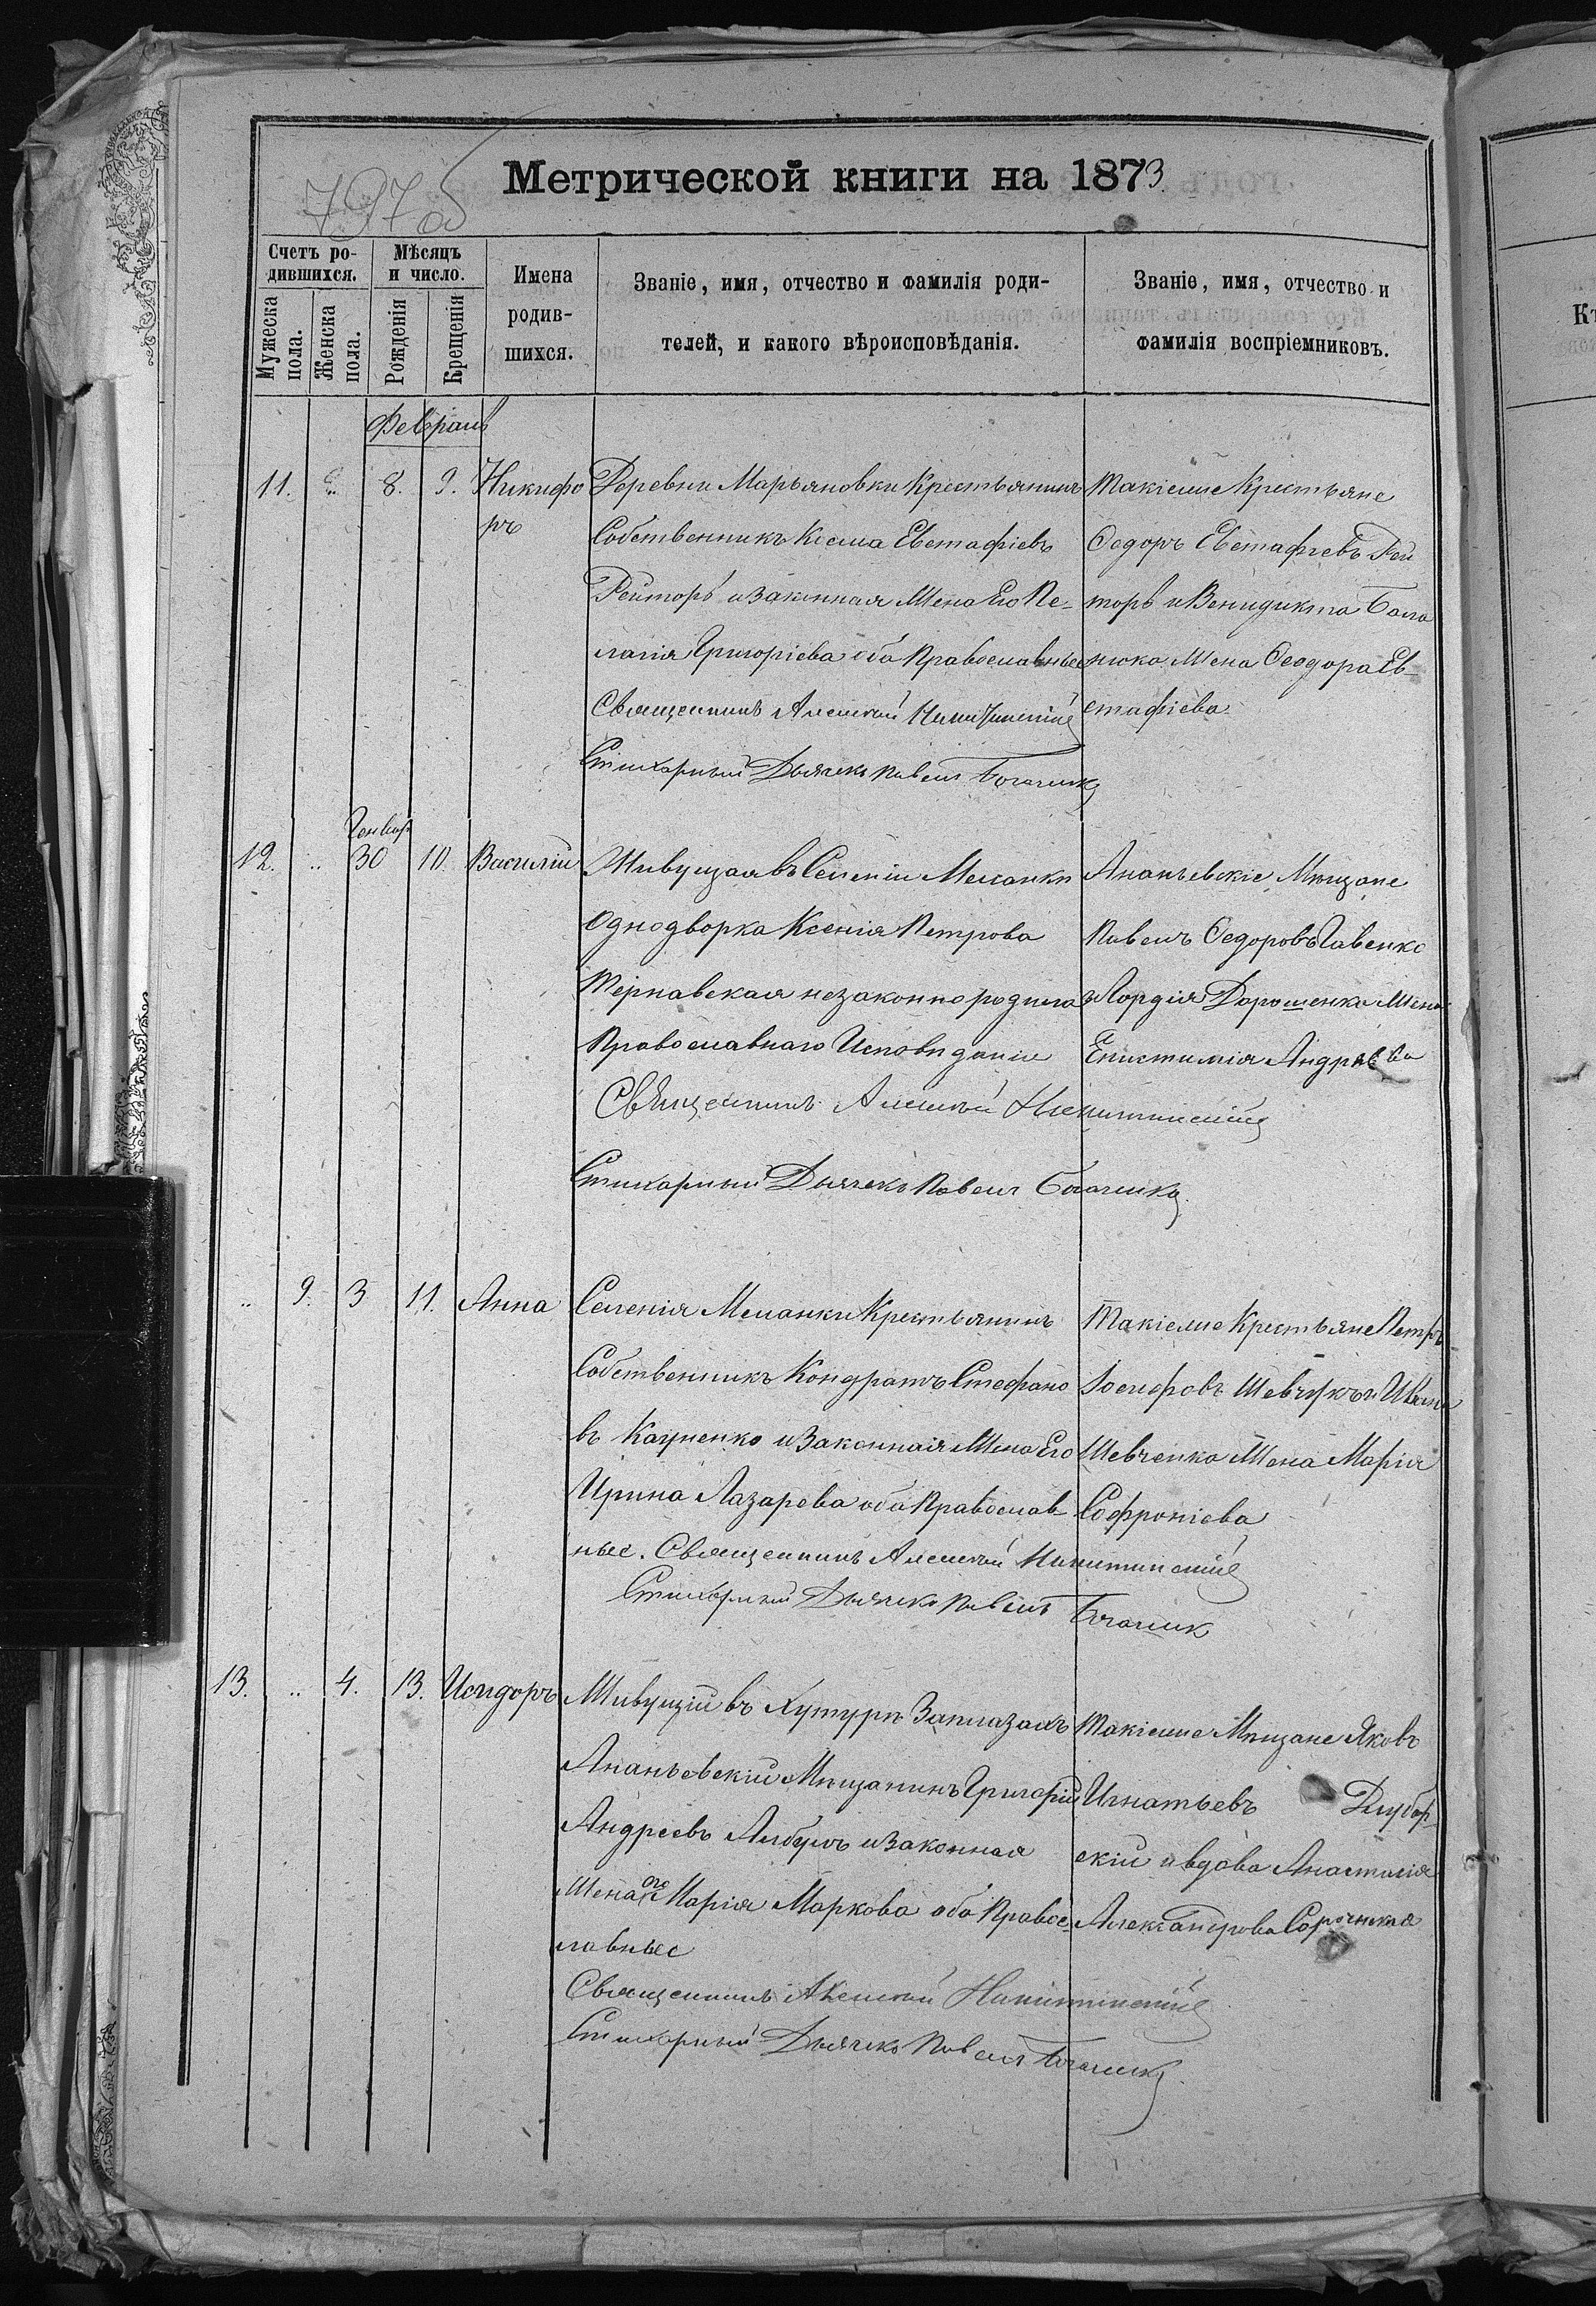 797 об
Метрической книги на 1873.
Счетъ ро-
дившихся.
Мужеска
пола.
Женска
пола.
Мѣсяцъ
и число.
Рожденія
Крещенія
Имена
родив-
шихся.
Званіе, имя, отчество и фамилія роди-
телей, и какого вѣроисповѣданія.
Званіе, имя, отчество и
фамилія воспріемниковъ.
Февраль
11. „ 8. 9. Никифо
ръ
Деревни Марьяновки Крестьянинъ
Собственникъ Косма Евстафіевъ
Рейторъ и Законная Жена Его Пе-
лагія Григоріева оба Православные
Священникъ Алексѣй Никитинскій
Стихарный Дьячекъ Павелъ
Такіеже Крестьяне
Ѳедоръ Евстафіевъ Рей
торъ и Венидикта Бала
нюка Жена Ѳеодора Ев-
стафіева
Генвар
12. „ 30 10. Василій
Живущая въ Селеніи Меланки
Однодворка Ксенія Петрова
Тернавская незаконно родила
Православнаго Исповѣданія
Священникъ Алексѣй Никитинскій
Стихарный Дьячекъ Павелъ
Ананьевскіе Мѣщане
Павелъ Ѳедоровъ Гавенко
и Гордія Дорошенка Жена
Епистимія Андреева
„ 9. 3 11. Анна
Селенія Меланки Крестьянинъ
Собственникъ Кондратъ Стефано
въ Кауненко и Законная Жена Его
Ирина Лазарева оба Православ-
ные. Священникъ Алексѣй Никитинскій
Стихарный Дьячекъ Павелъ
Такіеже Крестьяне Петръ
Іосифовъ Шевчукъ и Ивана
Шевченка Жена Марія
Софроніева
13. „ 4. 13. Исидоръ
Живущій въ Хуторѣ Заплазахъ
Ананьевскій Мѣщанинъ Григорій
Андреевъ Албулъ и Законная
Жена его Марія Маркова оба Правос-
лавные
Священникъ Алексѣй Никитинскій
Стихарный Дьячекъ Павелъ
Такіеже Мѣщане Яковъ
Игнатьевъ
скій и вдова Анастасія
Александрова